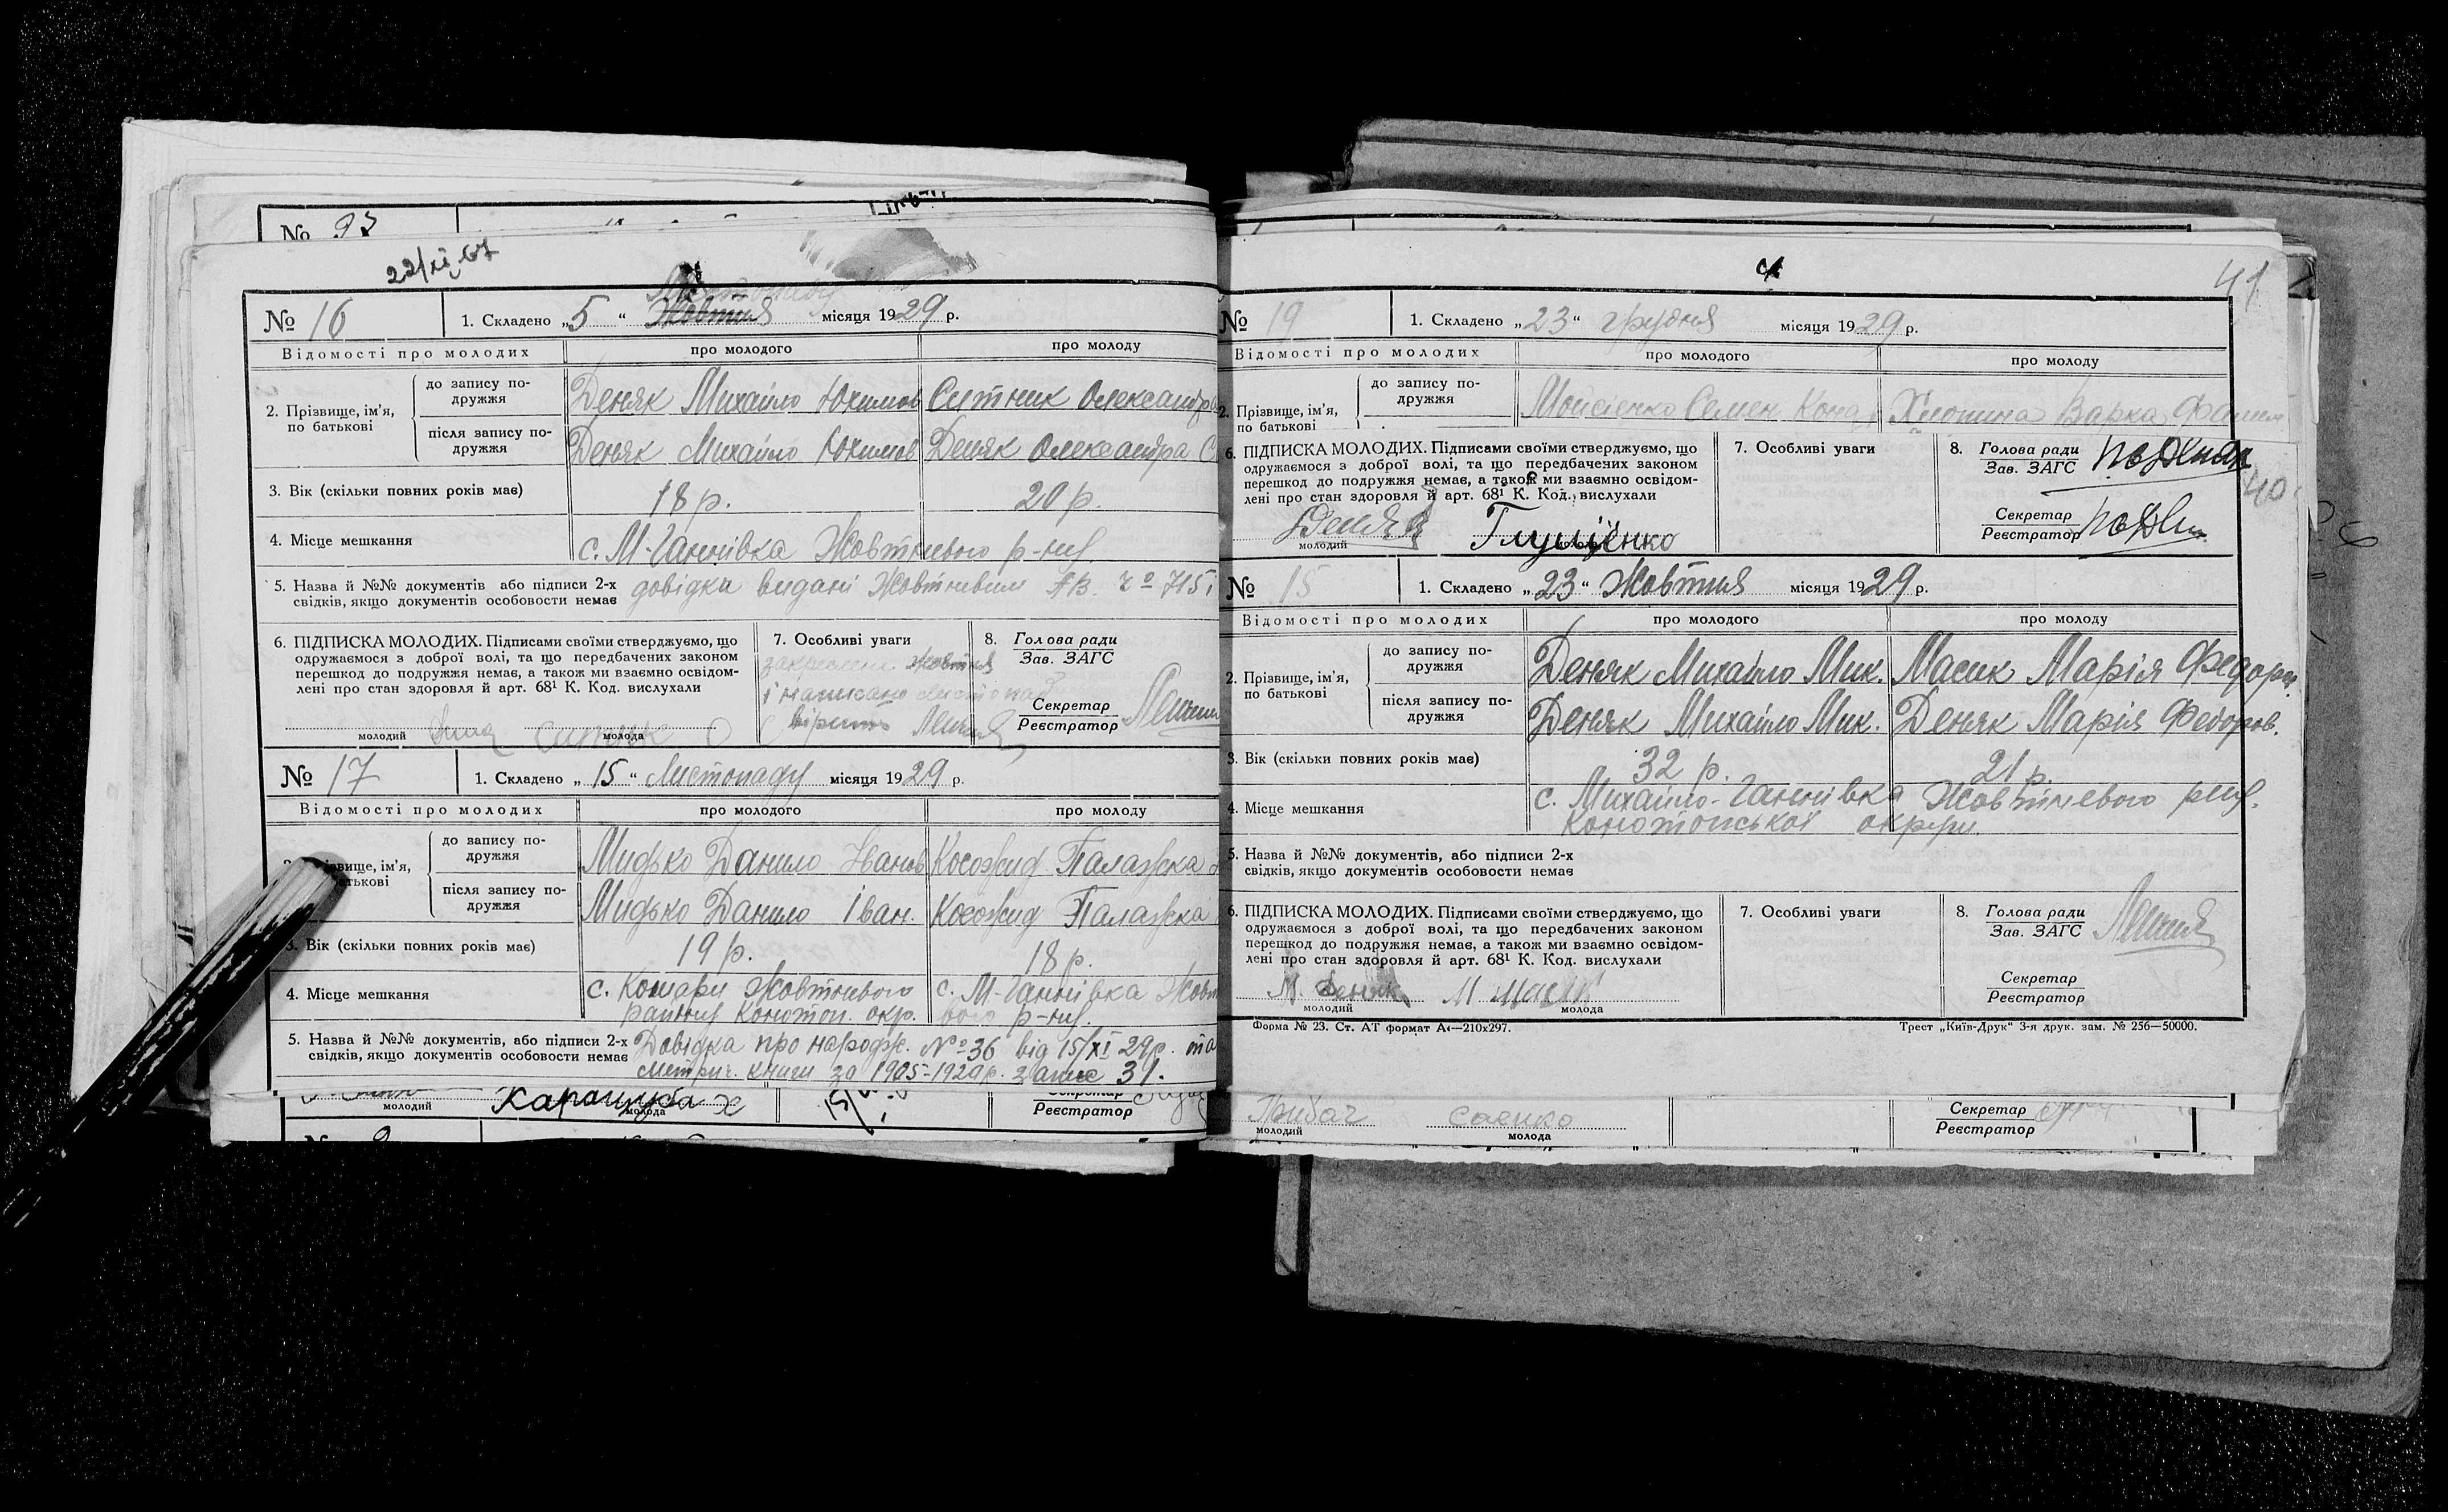 № 93
22/XI 67
№ 16
1. Складено „5“ Жовтня Листопаду місяця 1929 р.
Відомості про молодих
про молодого
про молоду
2. Прізвище, ім’я, по батькові
до запису подружжя
Деняк Михайло Юхимов
Ситник Олександра
після запису подружжя
Деняк Михайло Юхимов
Деняк Олександра С
3. Вік (скільки повних років має)
18 р.
20 р.
4. Місце мешкання
с. М-Ганнівка Жовтневого р-ну
5. Назва й №№ документів або підписи 2-х
свідків, якщо документів особовости немає
довідка видані Жовтневим 715 і
6. ПІДПИСКА МОЛОДИХ. Підписами своїми стверджуємо, що
одружаємося з доброї волі, та що передбачених законом
перешкод до подружжя немає, а також ми взаємно освідом-
лені про стан здоровля й арт. 68¹ К. Код. вислухали
молодий
молода
Ситник О
7. Особливі уваги
закреслен Жовтня
і написано листопад
вірить
8. Голова ради
Зав. ЗАГС
Секретар
Реєстратор
№ 17
1. Складено „15“ Листопаду місяця 1929 р.
Відомості про молодих
про молодого
про молоду
вище, ім’я,
батькові
до запису подружжя
Мидько Данило Іванов
Косожид Палажка
після запису подружжя
Мидько Данило Іван.
Косожид Палажка
3. Вік (скільки повних років має)
19 р.
18 р.
4. Місце мешкання
с. Кошари Жовтневого
району Конотоп. окр.
с. М-Ганнівка Жовт
вого р-ну.
5. Назва й №№ документів, або підписи 2-х
свідків, якщо документів особовости немає
Довідка про народж. № 36 від 15/XI 29р. та
метрич. книги за 1905-1920р. запис 31.
молодий
Карацюба Х
молода
Секретар
Реєстратор
41
№ 19
1. Складено „23“ грудня місяця 1929 р.
Відомості про молодих
про молодого
про молоду
2. Прізвище, ім’я,
по батькові
до запису подружжя
Мойсіенко Семен Кона
Варка
6. ПІДПИСКА МОЛОДИХ. Підписами своїми стверджуємо, що
одружаємося з доброї волі, та що передбачених законом
перешкод до подружжя немає, а також ми взаємно освідом-
лені про стан здоровля й арт. 68¹ К. Код. вислухали
Деняк
молодий
Глущенко
молода
7. Особливі уваги
8. Голова ради
Зав. ЗАГС
Секретар
Реєстратор
40
№ 15
1. Складено „23“ Жовтня місяця 1929 р.
Відомості про молодих
про молодого
про молоду
2. Прізвище, ім’я,
по батькові
до запису подружжя
Деняк Михайло Мик.
Масик Марія Федоров.
після запису подружжя
Деняк Михайло Мик.
Деняк Марія Федоров.
3. Вік (скільки повних років має)
32 р.
21 р.
4. Місце мешкання
с. Михайло-Ганнівка Жовтневого рну.
Конотопської округи.
5. Назва й №№ документів, або підписи 2-х
свідків, якщо документів особовости немає
6. ПІДПИСКА МОЛОДИХ. Підписами своїми стверджуємо, що
одружаємося з доброї волі, та що передбачених законом
перешкод до подружжя немає, а також ми взаємно освідом-
лені про стан здоровля й арт. 68¹ К. Код. вислухали
М. Деняк
молодий
М Масик
молода
7. Особливі уваги
8. Голова ради
Зав. ЗАГС
Секретар
Реєстратор
Форма № 23. Ст. АТ формат А4—210х297.
Трест „Київ-Друк“ 3-я друк. зам. № 256—50000.
Грибач
молодий
Саенко
молода
Секретар
Реєстратор